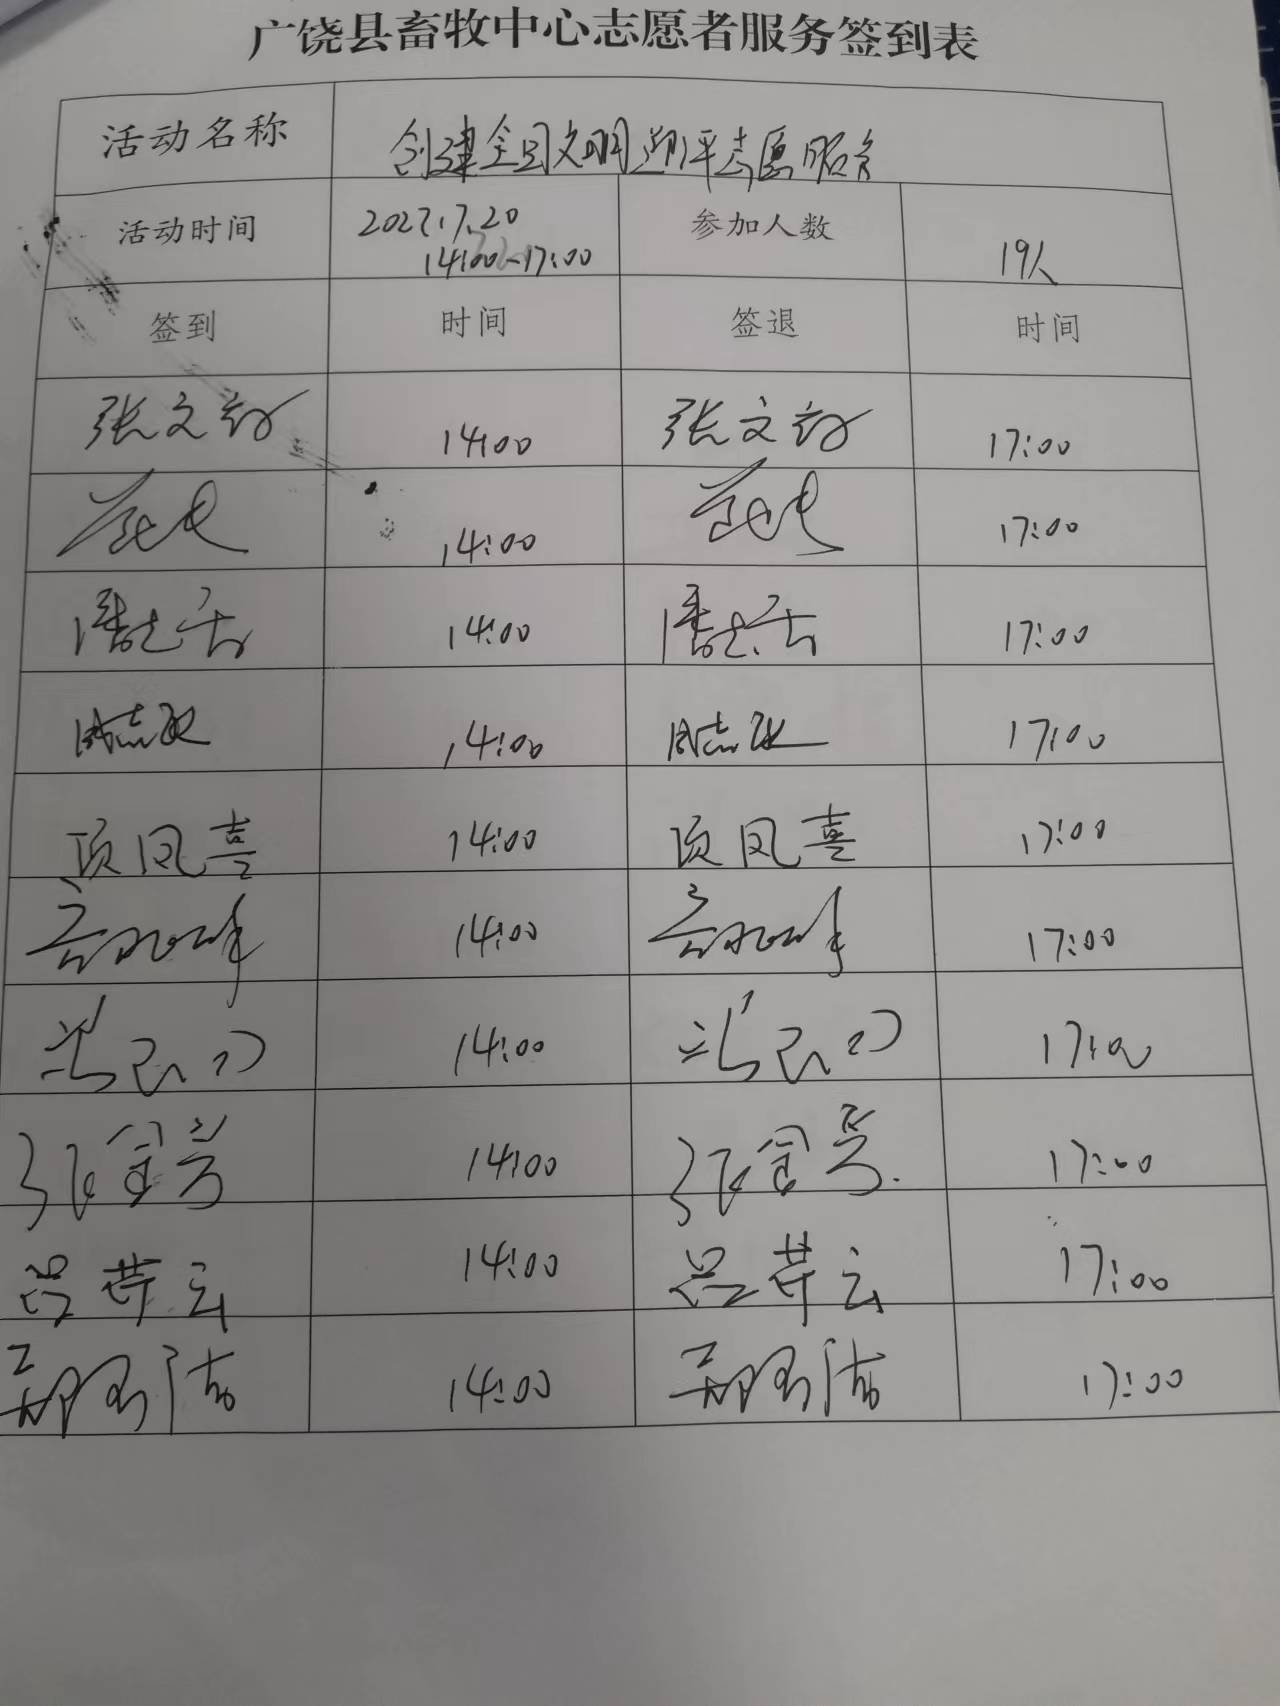 广饶县畜牧中心志愿者服务签到表
活动名称 创建全国文明迎评志愿服务
活动时间 2022.7.20 14:00-17:00 参加人数 19人
签到 时间 签退 时间
张文 14:00 张文 17:00
14:00 17:00
潘 14:00 潘 17:00
周志 14:00 周志 17:00
项凤喜 14:00 项凤喜 17:00
14:00 17:00
14:00 17:00
张金 14:00 张金 17:00
吕芹云 14:00 吕芹云 17:00
14:00 17:00